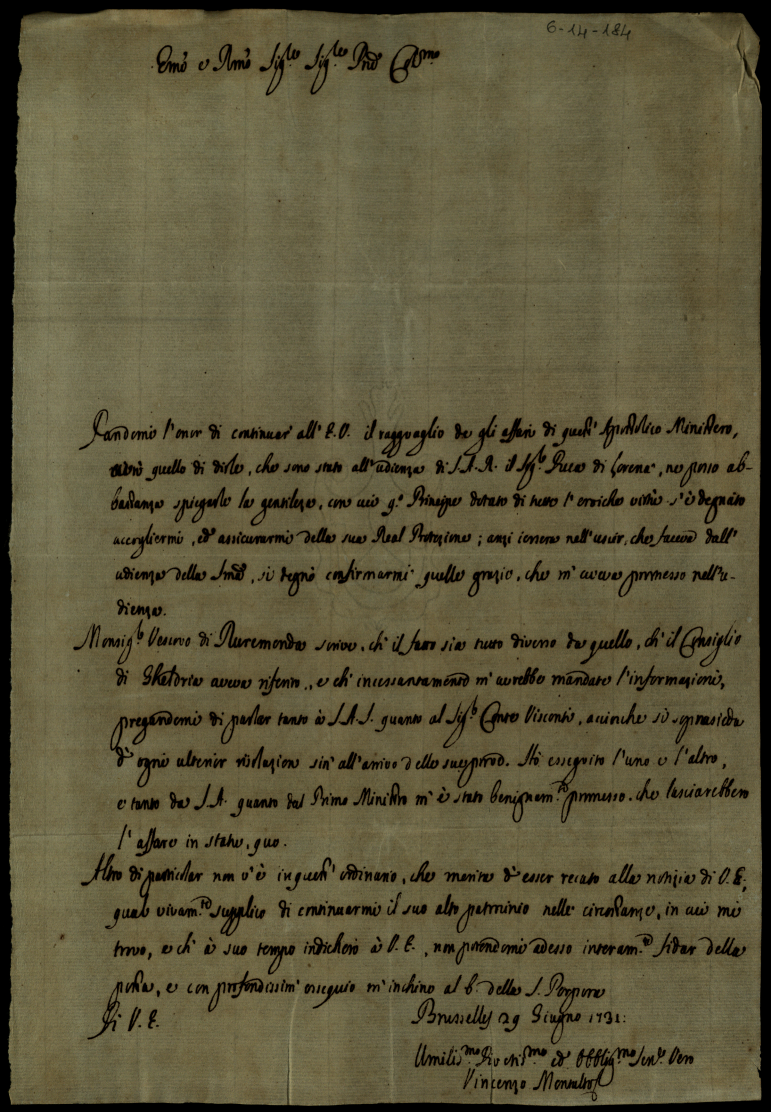 6-14-184
Emō e Rmō Sig.re Sig.re Prōn Col.mo
Facendomi l'onor di continuar' all' E.V. il ragguaglio de gli affari di quest' Apostolico Ministero,
quello di dirle, che sono stato all'udienza di S.A.R. il Sig.r Duca di Lorena, ne posso ab-
bastanza spiegarle la gentilezza, con cui q.o Principe dotato di tutte l'eroiche virtù s'è degnato
accogliermi, ed' assicurarmi della sua Real Protezione; anzi iersera nell'uscir, che faceva dall'
udienza della, si degnò confirmarmi quelle grazie, che m'aveva promesso nell'u-
dienza.
Monsig.r Vescovo di Ruremonda scrive, ch' il fatto sia tutto diverso da quello, ch' il Consiglio
di Gheldria aveva riferito, e ch' incessantemente m'avrebbe mandate l'informazioni,
pregandomi di parlar tanto à S.A.S. quanto al Sig.r Conte Visconti, acciocche si soprasieda
d' ogni ulterior risoluzion sin' all'arrivo delle sue. Hò esseguito l'uno e l'altro,
e tanto da S.A. quanto dal Primo Ministro m'è stato benignam.te promesso, che lasciarebbero
l'affare in statu, quo.
Altro di particolar non v'è in quest' ordinario, che merita d'esser recato alla notizia di V.E.,
qual vivam.te supplico di continuarmi il suo alto patrocinio nelle circostanze, in cui mi
trovo, e ch' à suo tempo indicherò à V.E., non potendomi adesso interam.te fidar della
posta, e con profondissim' ossequio m'inchino al b. della S. Porpora
Di V.E.
Brusselles 29 Giugno 1731:
Umilis.mo Divotis.mo ed Obblig.mo Ser.re Vero
Vincenzo Montalto